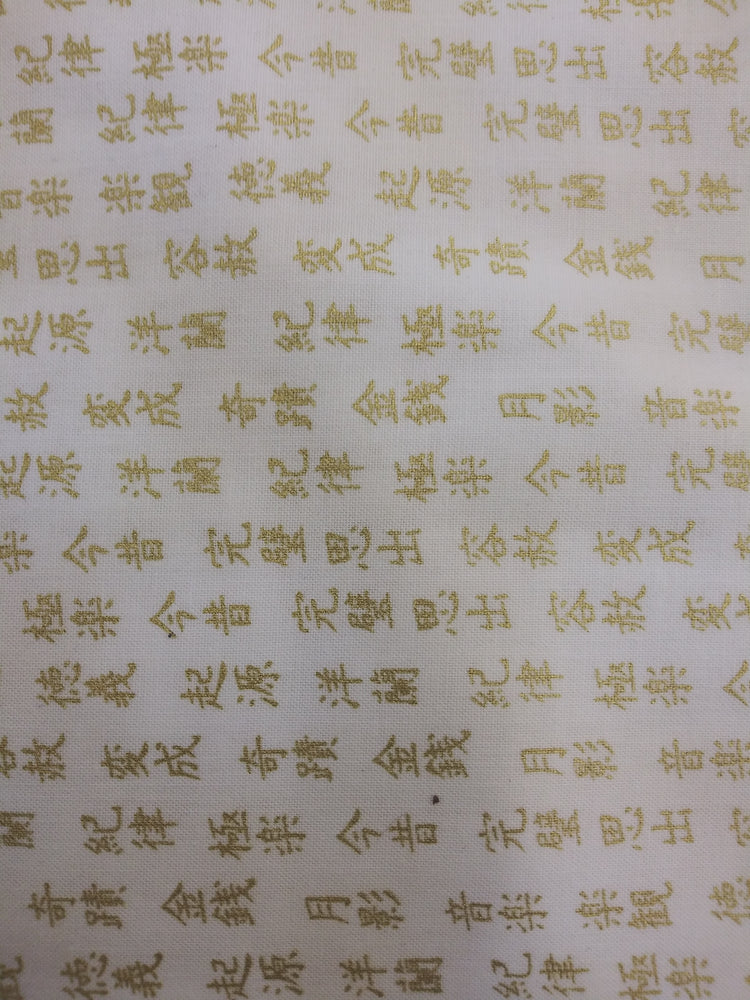 紀律 極楽 今昔 完璧 思出 容赦
蘭 紀律 極楽 今昔 完璧 思出
音楽 楽観 徳義 起源 洋蘭 紀律
思出 容赦 変成 奇蹟 金銭 月
起源 洋蘭 紀律 極楽 今昔 完璧
赦 変成 奇蹟 金銭 月影 音楽
起源 洋蘭 紀律 極楽 今昔 完璧
楽 今昔 完璧 思出 容赦 変成
極楽 今昔 完璧 思出 容赦 変
徳義 起源 洋蘭 紀律 極楽 今
容赦 変成 奇蹟 金銭 月影 音楽
蘭 紀律 極楽 今昔 完璧 思出
奇蹟 金銭 月影 音楽 楽観 徳
徳義 起源 洋蘭 紀律 極楽